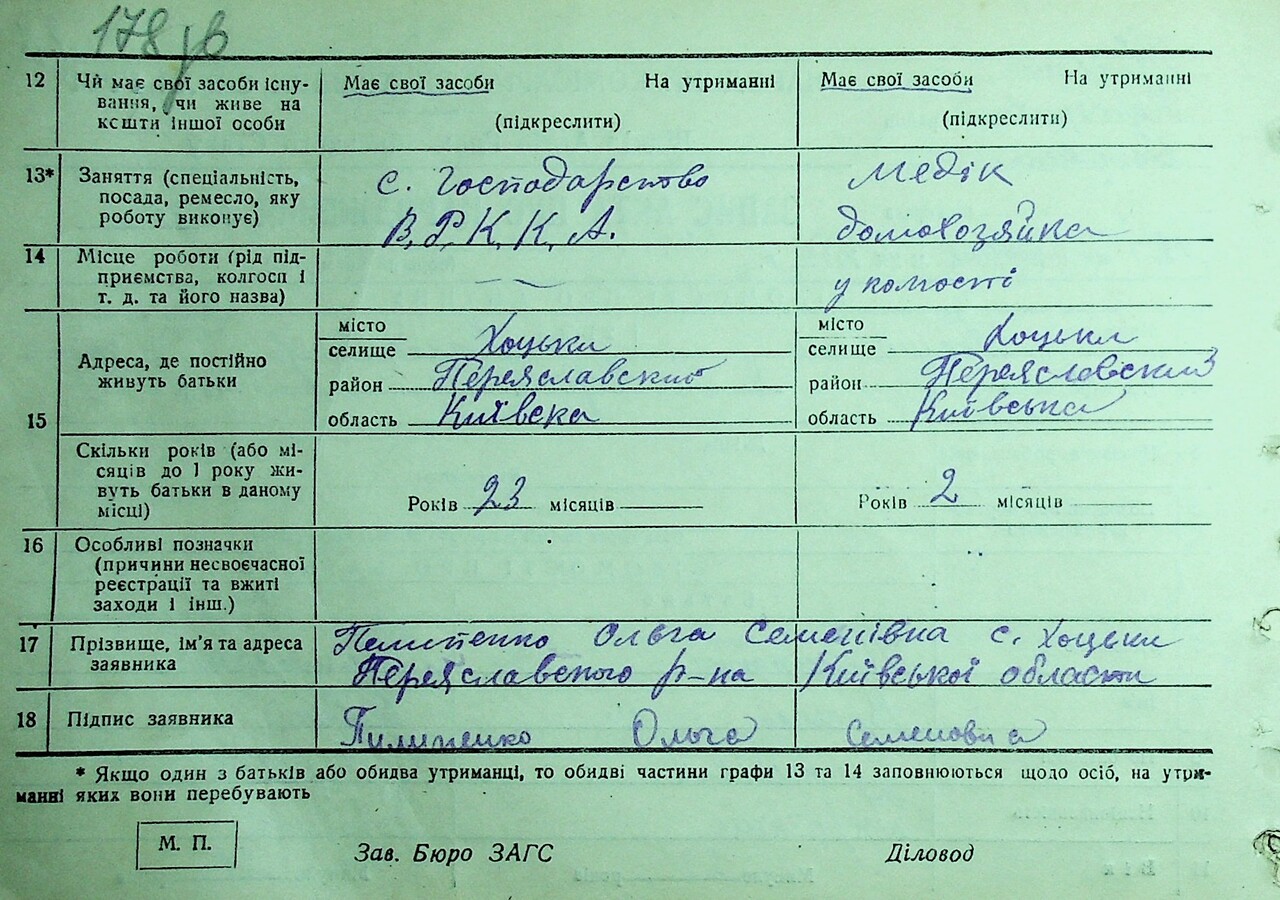 178 зв
12 Чи має свої засоби існу- Має свої засоби На утриманні Має свої засоби На утриманні
вання, чи живе на
кошти іншої особи (підкреслити) (підкреслити)
13* Заняття (спеціальність, с. господарство медік
посада, ремесло, яку
роботу виконує) В. Р. К. К. А. домохозяйка
14 Місце роботи (рід під-
приємства, колгосп і
т. д. та його назва) у
місто місто
селище Хоцьки селище Хоцьки
Адреса, де постійно
живуть батьки район Переяславский район Переяславский
15 область Київска область Київська
Скільки років (або мі-
сяців до 1 року жи-
вуть батьки в даному
місці) Років 23 місяців Років 2 місяців
16 Особливі позначки
(причини несвоєчасної
реєстрації та вжиті
заходи і інш.)
17 Прізвище, ім'я та адреса Пелипенко Ольга Семенівна с. Хоцьки
заявника Переяславского р-на Київської области
18 Підпис заявника Пилипенко Ольга Семеновна
* Якщо один з батьків або обидва утриманці, то обидві частини графи 13 та 14 заповнюються щодо осіб, на утри-
манні яких вони перебувають
М. П. Зав. Бюро ЗАГС Діловод